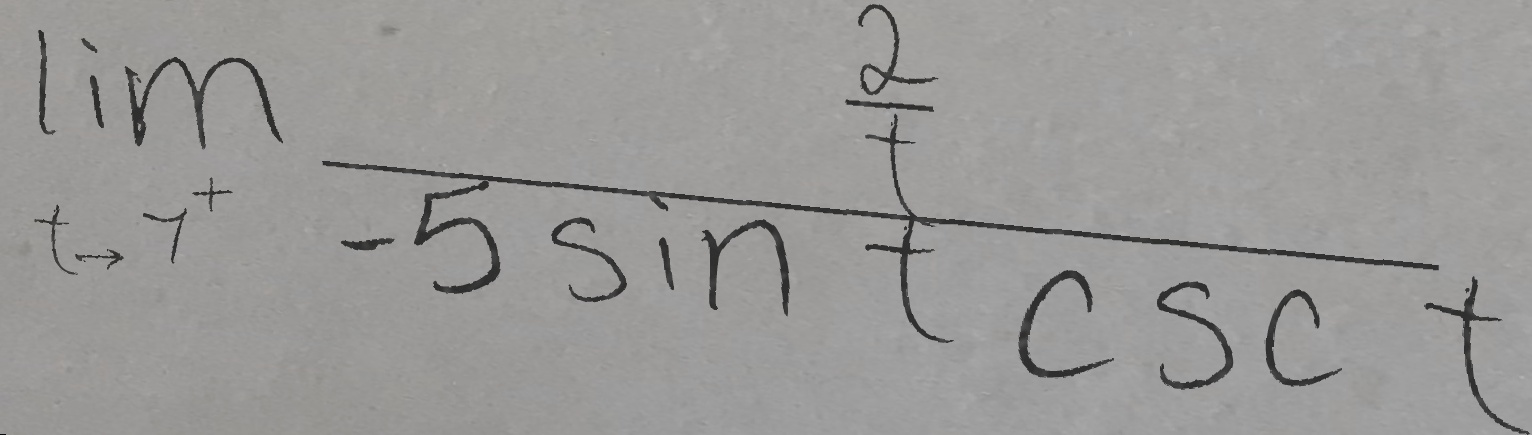 lim_{t \to 7^+} \frac{\frac{2}{t}}{-5 \sin t \csc t}